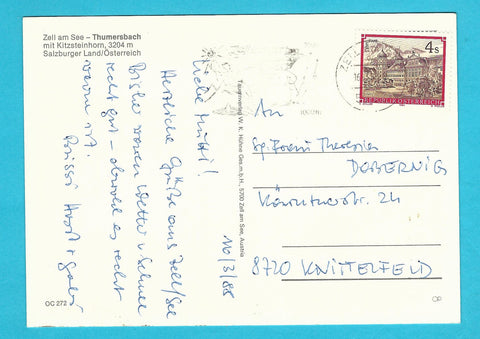 Zell am See – Thumersbach
mit Kitzsteinhorn, 3204 m
Salzburger Land/Österreich
Liebe Mutti!
Herzliche Grüße aus Zell/See
Bisher waren Wetter u Schnee
recht gut – obwohl es recht
warm ist.
Bussi Horst +
16/3/88
Tauernverlag W. K. Hühne Ges.m.b.H., 5700 Zell am See, Austria
OC 272
ZELL
4s
REPUBLIK ÖSTERREICH
An
Theresia
DOBERNIG
Kärntnerstr. 24
8720 KNITTELFELD